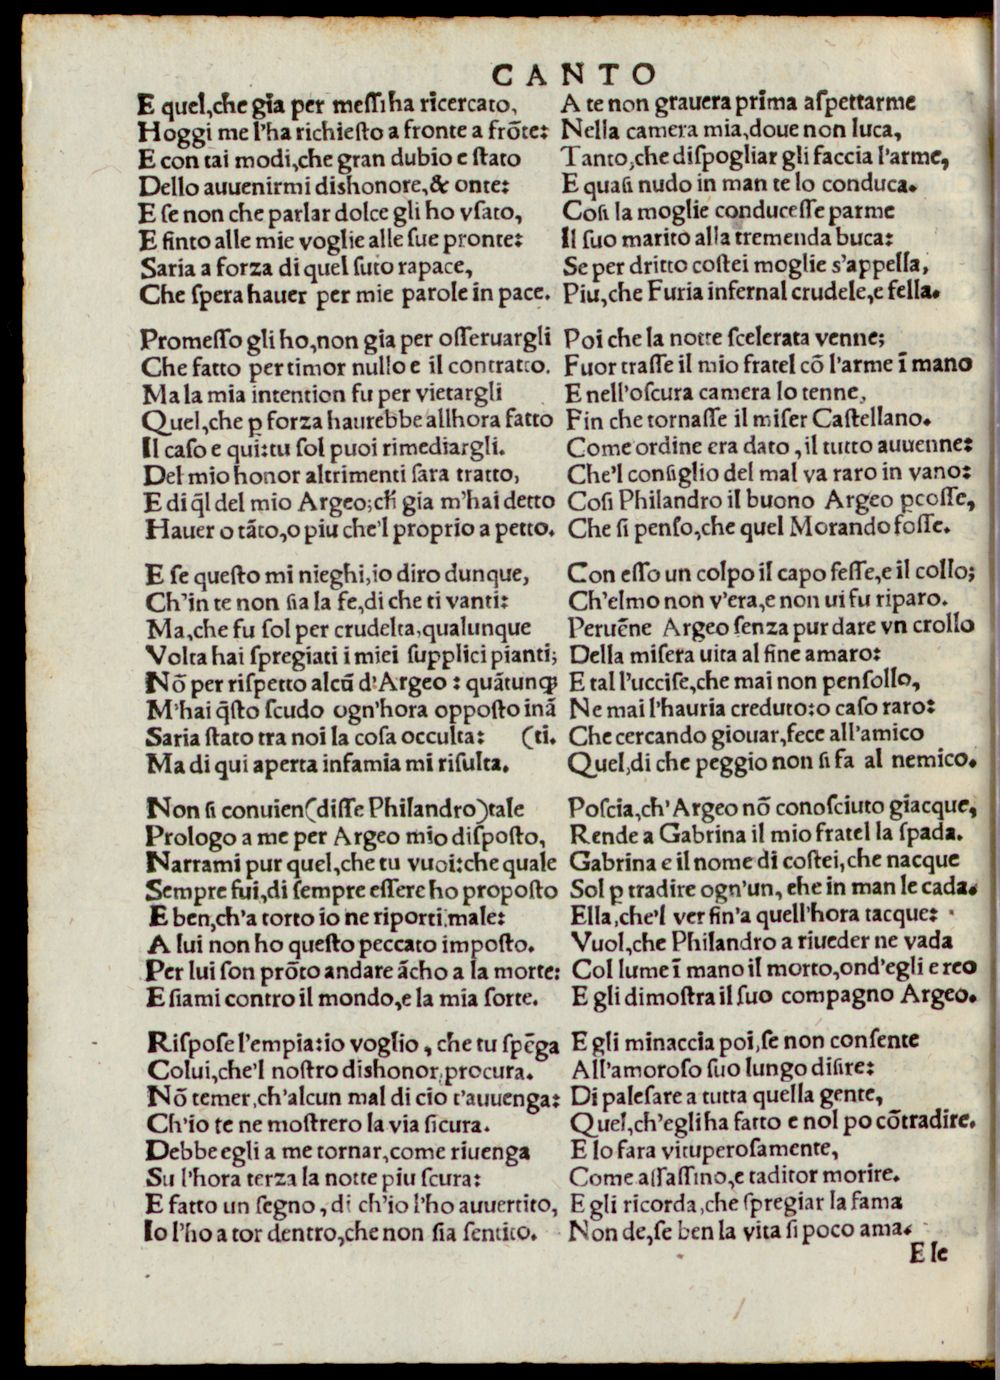 CANTO
E quel, che gia per messi ha ricercato,
Hoggi me l'ha richiesto a fronte a frõte:
E con tai modi, che gran dubio e stato
Dello auuenirmi dishonore, & onte:
E se non che parlar dolce gli ho vsato,
E finto alle mie voglie alle sue pronte:
Saria a forza di quel suto rapace,
Che spera hauer per mie parole in pace.
Promesso gli ho, non gia per osseruargli
Che fatto per timor nullo e il contratto.
Ma la mia intention fu per vietargli
Quel, che ꝑ forza haurebbe allhora fatto
Il caso e qui: tu sol puoi rimediargli.
Del mio honor altrimenti sara tratto,
E di q̃l del mio Argeo; ch̃ gia m'hai detto
Hauer o tãto, o piu che'l proprio a petto.
E se questo mi nieghi, io diro dunque,
Ch'in te non sia la fe, di che ti vanti:
Ma, che fu sol per crudelta, qualunque
Volta hai spregiati i miei supplici pianti;
Nõ per rispetto alcũ d'Argeo: quãtunꝙ
M'hai q̃sto scudo ogn'hora opposto inã
Saria stato tra noi la cosa occulta: (ti.
Ma di qui aperta infamia mi risulta.
Non si conuien (disse Philandro) tale
Prologo a me per Argeo mio disposto,
Narrami pur quel, che tu vuoi: che quale
Sempre fui, di sempre essere ho proposto
E ben, ch'a torto io ne riporti male:
A lui non ho questo peccato imposto.
Per lui son prõto andare ãcho a la morte:
E siami contro il mondo, e la mia sorte.
Rispose l'empia: io voglio, che tu spẽga
Colui, che'l nostro dishonor procura.
Nõ temer, ch'alcun mal di cio t'auuenga:
Ch'io te ne mostrero la via sicura.
Debbe egli a me tornar, come riuenga
Su l'hora terza la notte piu scura:
E fatto un segno, di ch'io l'ho auuertito,
Io l'ho a tor dentro, che non sia sentito.
A te non grauera prima aspettarme
Nella camera mia, doue non luca,
Tanto, che dispogliar gli faccia l'arme,
E quasi nudo in man te lo conduca.
Cosi la moglie conducesse parme
Il suo marito alla tremenda buca:
Se per dritto costei moglie s'appella,
Piu, che Furia infernal crudele, e fella.
Poi che la notte scelerata venne;
Fuor trasse il mio fratel cõ l'arme ĩ mano
E nell'oscura camera lo tenne,
Fin che tornasse il miser Castellano.
Come ordine era dato, il tutto auuenne:
Che'l consiglio del mal va raro in vano:
Cosi Philandro il buono Argeo ꝑcosse,
Che si penso, che quel Morando fosse.
Con esso un colpo il capo fesse, e il collo;
Ch'elmo non v'era, e non ui fu riparo.
Peruẽne Argeo senza pur dare vn crollo
Della misera uita al fine amaro:
E tal l'uccise, che mai non pensollo,
Ne mai l'hauria creduto: o caso raro:
Che cercando giouar, fece all'amico
Quel, di che peggio non si fa al nemico.
Poscia, ch'Argeo nõ conosciuto giacque,
Rende a Gabrina il mio fratel la spada.
Gabrina e il nome di costei, che nacque
Sol ꝑ tradire ogn'un, che in man le cada.
Ella, che'l ver fin'a quell'hora tacque:
Vuol, che Philandro a riueder ne vada
Col lume ĩ mano il morto, ond'egli e reo
E gli dimostra il suo compagno Argeo.
E gli minaccia poi, se non consente
All'amoroso suo lungo disire:
Di palesare a tutta quella gente,
Quel, ch'egli ha fatto e nol po cõtradire.
E lo fara vituperosamente,
Come assassino, e taditor morire.
E gli ricorda, che spregiar la fama
Non de, se ben la vita si poco ama.
E le